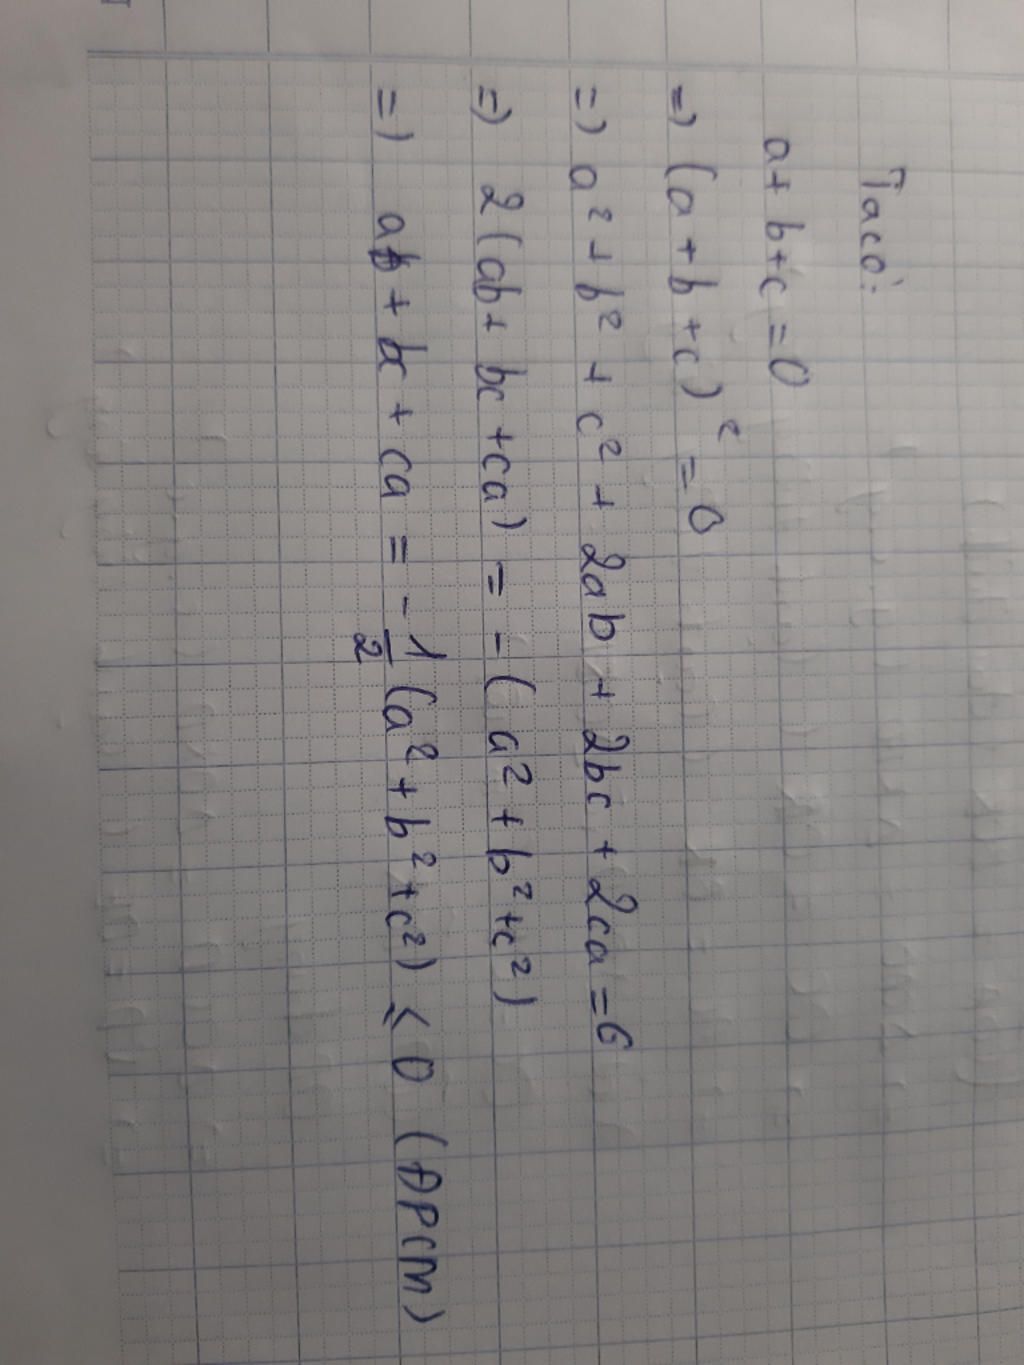 Ta có:
a + b + c = 0
=) (a + b + c)² = 0
=) a² + b² + c² + 2ab + 2bc + 2ca = 0
=) 2(ab + bc + ca) = - (a² + b² + c²)
=) ab + bc + ca = - 1/2 (a² + b² + c²) ≤ 0 (ĐPCM)